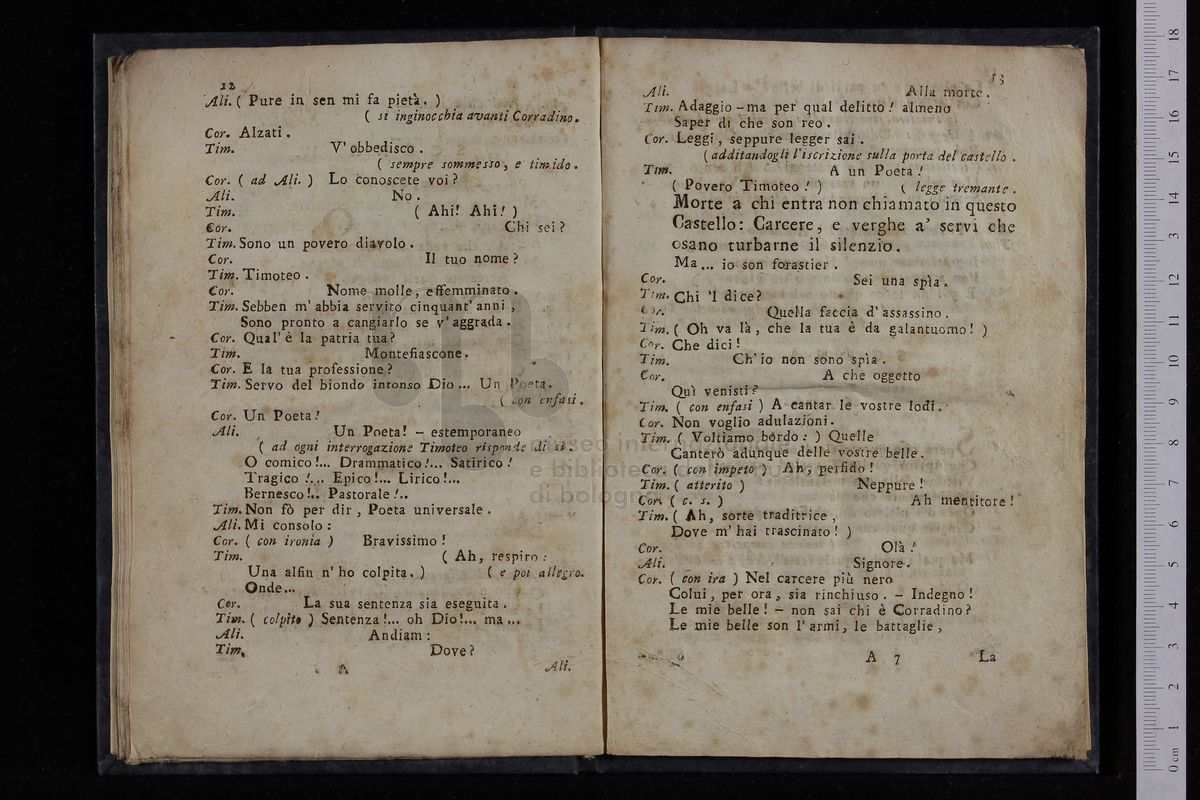 12
Ali. ( Pure in sen mi fa pietà. )
( si inginocchia avanti Corradino.
Cor. Alzati.
Tim. V' obbedisco.
( sempre sommesso, e timido.
Cor. ( ad Ali. ) Lo conoscete voi?
Ali. No.
Tim. ( Ahi! Ahi! )
Cor. Chi sei?
Tim. Sono un povero diavolo.
Cor. Il tuo nome?
Tim. Timoteo.
Cor. Nome molle, effemminato.
Tim. Sebben m' abbia servito cinquant' anni,
Sono pronto a cangiarlo se v' aggrada.
Cor. Qual' è la patria tua?
Tim. Montefiascone.
Cor. E la tua professione?
Tim. Servo del biondo intonso Dio ... Un Poeta.
( con enfasi.
Cor. Un Poeta!
Ali. Un Poeta! – estemporaneo
( ad ogni interrogazione Timoteo risponde di sì.
O comico!... Drammatico!... Satirico!
Tragico!... Epico!... Lirico!...
Bernesco!.. Pastorale!..
Tim. Non fò per dir, Poeta universale.
Ali. Mi consolo:
Cor. ( con ironia ) Bravissimo!
Tim. ( Ah, respiro:
Una alfin n' ho colpita. ) ( e poi allegro.
Onde...
Cor. La sua sentenza sia eseguita.
Tim. ( colpito ) Sentenza!... oh Dio!... ma ...
Ali. Andiam:
Tim. Dove?
A Ali.
13
Ali. Alla morte.
Tim. Adaggio – ma per qual delitto! almeno
Saper di che son reo.
Cor. Leggi, seppure legger sai.
( additandogli l'iscrizione sulla porta del castello.
Tim. A un Poeta!
( Povero Timoteo! ) ( legge tremante.
Morte a chi entra non chiamato in questo
Castello: Carcere, e verghe a' servi che
osano turbarne il silenzio.
Ma... io son forastier.
Cor. Sei una spìa.
Tim. Chi 'l dice?
Cor. Quella faccia d' assassino.
Tim. ( Oh va là, che la tua è da galantuomo! )
Cor. Che dici!
Tim. Ch' io non sono spìa.
Cor. A che oggetto
Quì venisti?
Tim. ( con enfasi ) A cantar le vostre lodi.
Cor. Non voglio adulazioni.
Tim. ( Voltiamo bordo: ) Quelle
Canterò adunque delle vostre belle.
Cor. ( con impeto ) Ah, perfido!
Tim. ( atterito ) Neppure!
Cor. ( c. s. ) Ah mentitore!
Tim. ( Ah, sorte traditrice,
Dove m' hai trascinato! )
Cor. Olà!
Ali. Signore.
Cor. ( con ira ) Nel carcere più nero
Colui, per ora, sia rinchiuso. – Indegno!
Le mie belle! – non sai chi è Corradino?
Le mie belle son l' armi, le battaglie,
A 7 La